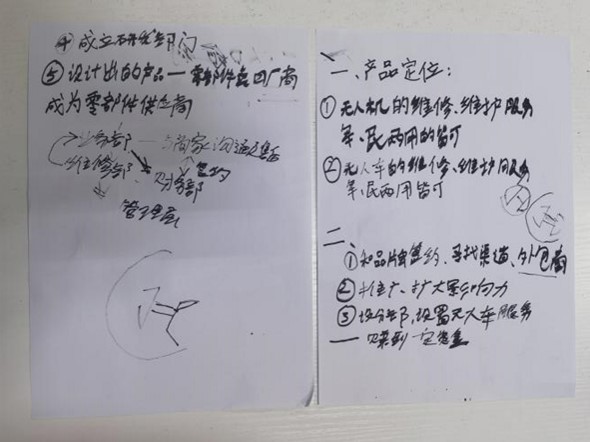 一、产品定位：
①无人机的维修、维护服务
军、民两用的皆可
②无人车的维修、维护服务
军、民两用皆可
二、
①和品牌签约、寻找渠道、外包商
②推广、扩大影响力
③设分部，设置无人车服务
一 赚到一定资金
④成立研发部门
⑤设计出的产品一零部件卖回厂商
成为零部件供应商
业务部 — 与商家沟通
维修部 财务部 签约
管理层